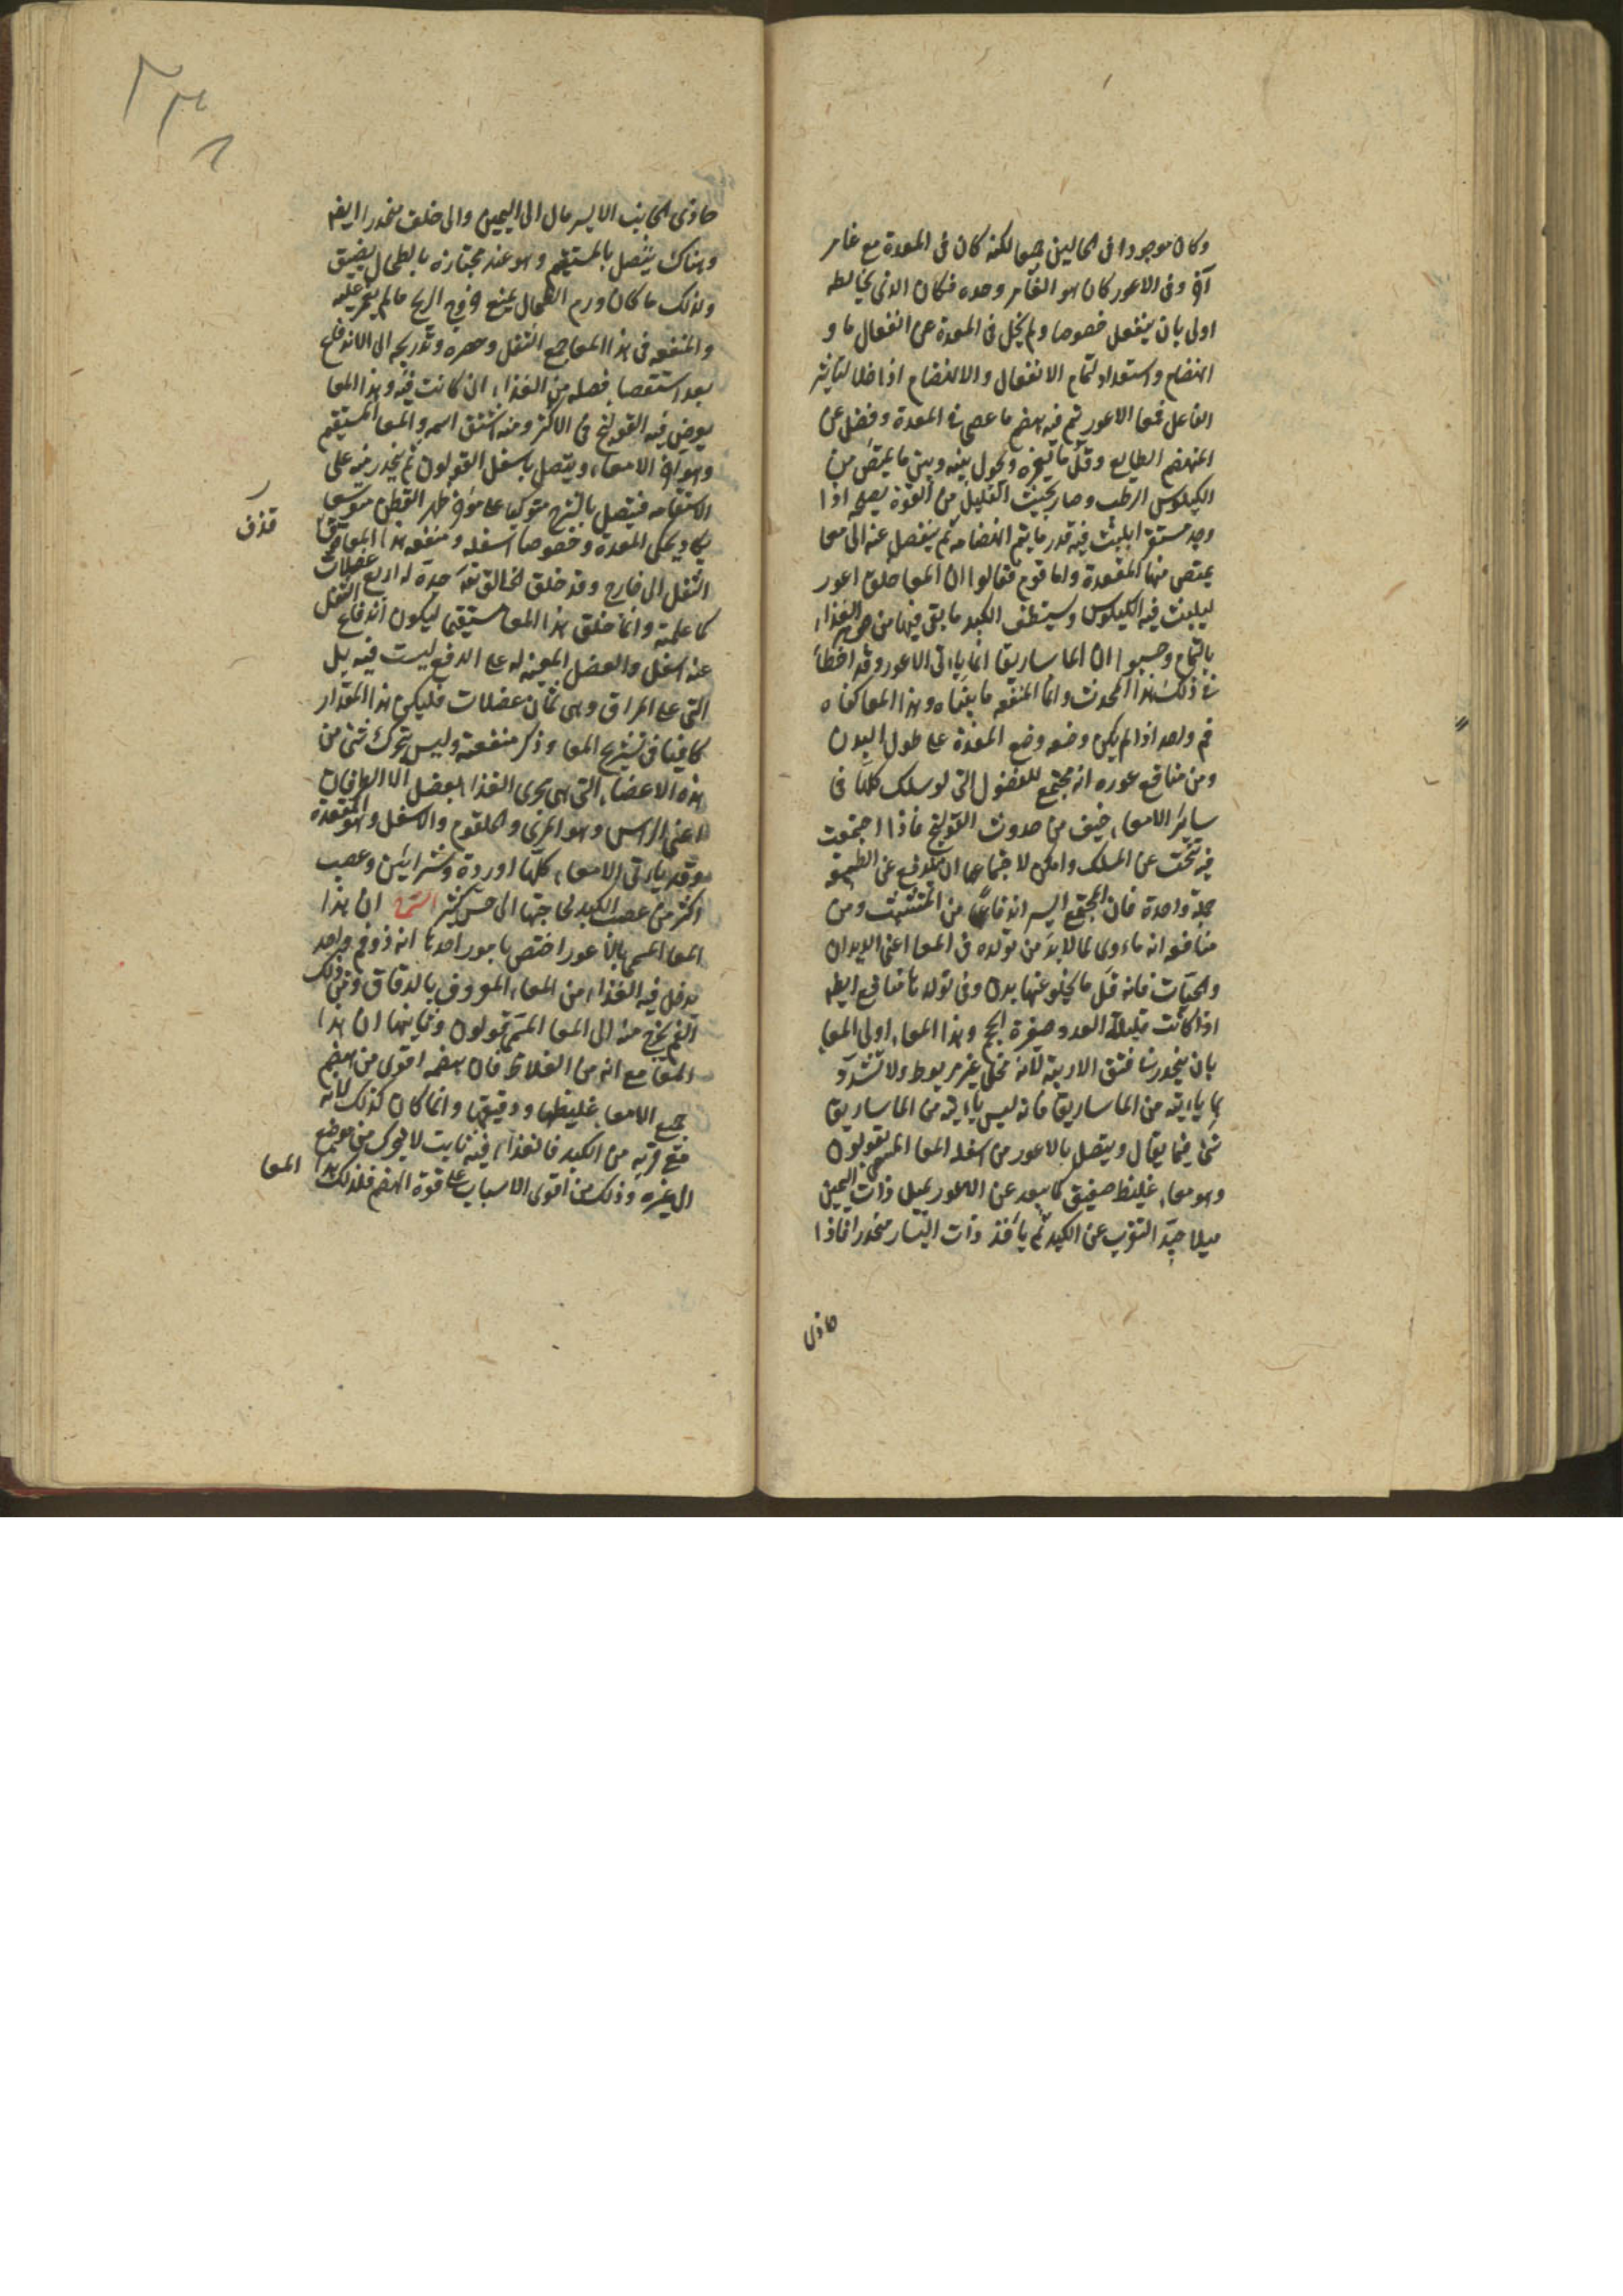 وكان موجودا فى الحالين جميعا لكنه كان فى المعدة مع غامر
آخر وفى الاعور كان هو الغامر وحده فكان الذى يخالطه
اولى بان ينفعل خصوصا ولم يخل فى المعدة عن انفعال ما و
انهضام واستعداد لتمام الانفعال والانهضام اذا خلا لتاثير
الفاعل فمعا الاعور تم فيه هضم ما عصى فى المعدة وفضل عن
المنهضم الطايع وقل ما يغمره ويحول بينه وبين ما يمتص من
الكيلوس الرطب وصار بحيث القليل من القوة يصلحه اذا
وجد مستقرا يلبث فيه قدر ما يتم انهضامه ثم ينفصل عنه الى معا
يمتص منها المقعدة واما قوم فقالوا ان المعا خلق اعور
ليلبث فيه الكيلوس ويستنظف الكبد ما بقى فيها من جوهر الغذاء
بالتمام وحسبوا ان الماساريقا انما ياتى الاعور وقد اخطأ
فى ذلك هذا المحدث وانما المنفعه ما بيناه وهذا المعا كفاه
فم واحد اذا لم يكن وضعه وضع المعدة على طول البدن
ومن منافع عوره انه مجتمع للفضول التى لو سلك كلها فى
ساير الامعاء خيف من حدوث القولنج فاذا اجتمعت
فيه تنحت عن المسلك وامكن لاجتماعها ان يندفع عن الطبيعه
جملة واحدة فان المجتمع ايسر اندفاعا من المتشبث ومن
منافعه انه ماءوى لما لابد من تولده فى المعا اعنى الديدان
والحيات فانه قل ما يخلو عنها بدن وفى تولدها منافع ايضا
اذا كانت قليلة العدد صغيرة الحجم وهذا المعاء اولى المعا
بان ينحدر فى فتق الاربية لانه مخلى غير مربوط ولا مشدود
بما ياتيه من الماساريقا فانه ليس ياتيه من الماساريقا
شى فيما يقال ويتصل بالاعور من اسفله المعا المسمى بقولون
وهو معاء غليظ صفيق كما يبعد عن الاعور يميل ذات اليمين
ميلا جيدا ليقرب عن الكبد ثم ياخذ ذات اليسار منحدرا فاذا
حاذى
حاذى الجانب الايسر مال الى اليمين والى خلف منحدرا ايضا
وهناك يتصل بالمستقيم وهو عند مجتازه بالطحال يضيق
ولذلك ما كان ورم الطحال يمنع خروج الريح ما لم يغمز عليه
والمنفعه فى هذا المعا جمع الثفل وحصره وتدريجه الى الاندفاع
بعد استقصاء فضله من الغذاء ان كانت فيه وهذا المعا
يعرض فيه القولنج فى الاكثر ومنه اشتق اسمه والمعا المستقيم
وهو آخر الامعاء ويتصل باسفل القولون ثم ينحدر منه على
الاستقامه فيتصل بالشرج متوكيا على موخر ظهر القطن متوسعا
يكاد يحكى المعدة وخصوصا اسفله ومنفعه هذا المعا قذف
الثفل الى خارج وقد خلق الخالق تعالى جده له اربع عضلات
كما علمته وانما خلق هذا المعا مستقيما ليكون اندفاع الثفل
عنه اسهل والعضل المعينه له على الدفع ليست فيه بل
التى على المراق وهى ثمان عضلات فليكن هذا المقدار
كافيا فى تشريح المعا وذكر منفعته وليس يتحرك شى من
هذه الاعضاء التى هى مجرى الغذاء بعضل الا الطرفان
اعنى الراس وهو المرى والحلقوم والاسفل وهو المقعدة
وقد ياتى الامعاء كلها اوردة وشرايين وعصب
اكثر من عصب الكبد لحاجتها الى حس كثير الشرح ان هذا
المعا المسمى بالاعور اختص بامور احدها انه ذو فم واحد
يدخل فيه الغذاء من المعاء المعروف بالدقاق ومن ذلك
الفم يخرج منه الى المعا المسمى قولون وثانيها ان هذا
المعا مع انه من الغلاظ فان هضمه اقوى من هضم
جميع الامعاء غليظها ودقيقها وانما كان كذلك لانه
مع قربه من الكبد فالغذاء فيه ثابت لا يتحرك من موضع
الى غيره وذلك من اقوى الاسباب على قوة الهضم فلذلك هذا المعا
قذف